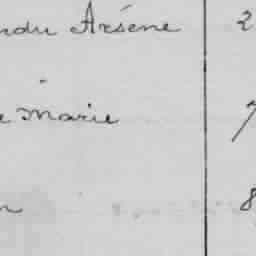 ndu Arsène 2
e Marie 7
n 8